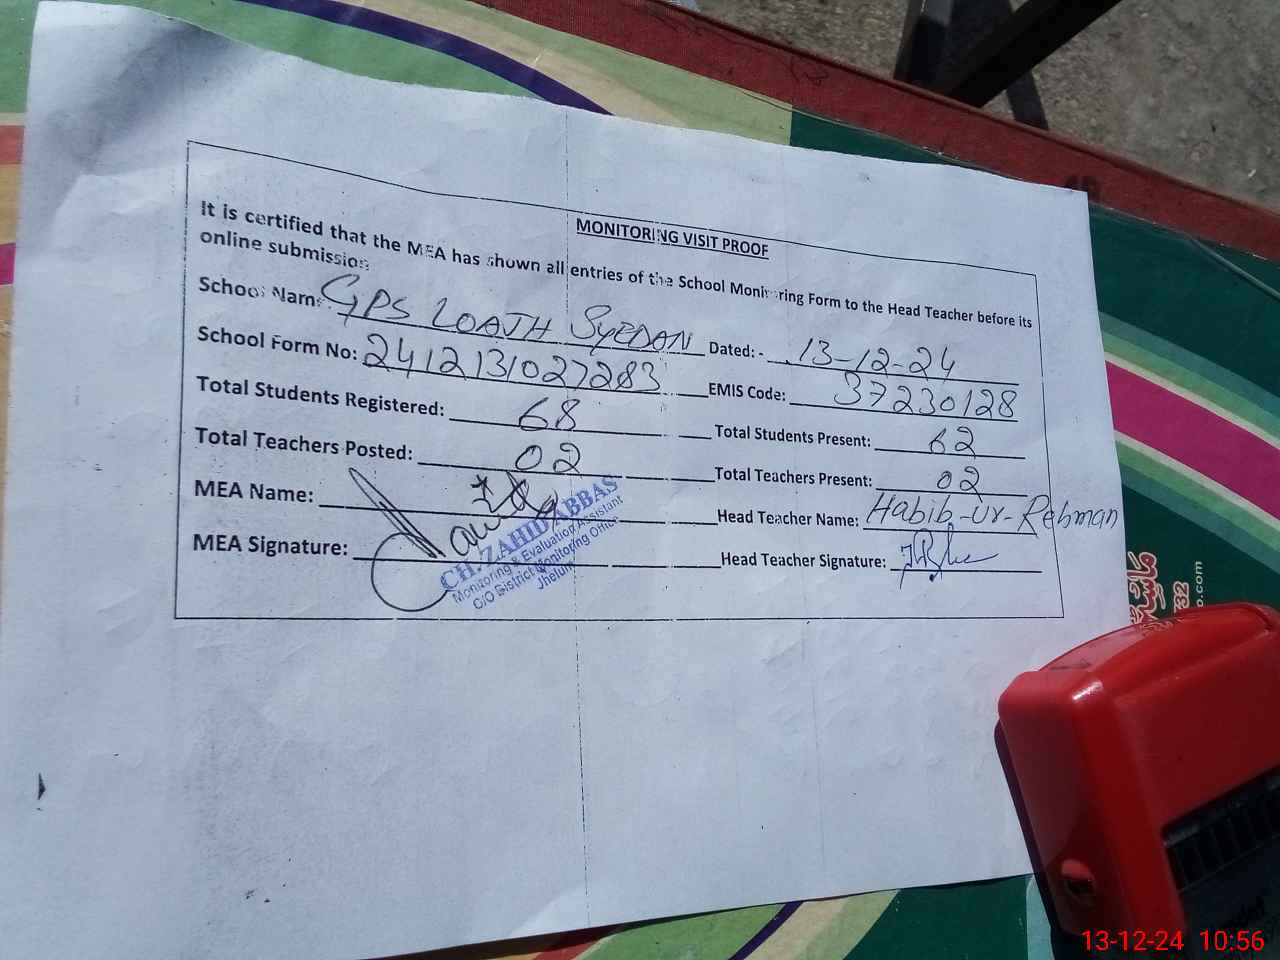 MONITORING VISIT PROOF
It is certified that the MEA has shown all entries of the School Monitoring Form to the Head Teacher before its
online submission
School Name: GPS LOATH SYEDAN Dated: - 13-12-24
School Form No: 2412131027283 EMIS Code: 37230128
Total Students Registered: 68 Total Students Present: 62
Total Teachers Posted: 02 Total Teachers Present: 02
MEA Name: Head Teacher Name: Habib-ur-Rehman
MEA Signature: Head Teacher Signature:
CH. ZAHID ABBAS
Monitoring & Evaluation Assistant
C/O District Monitoring Office
Jhelum
732
o.com
13-12-24 10:56